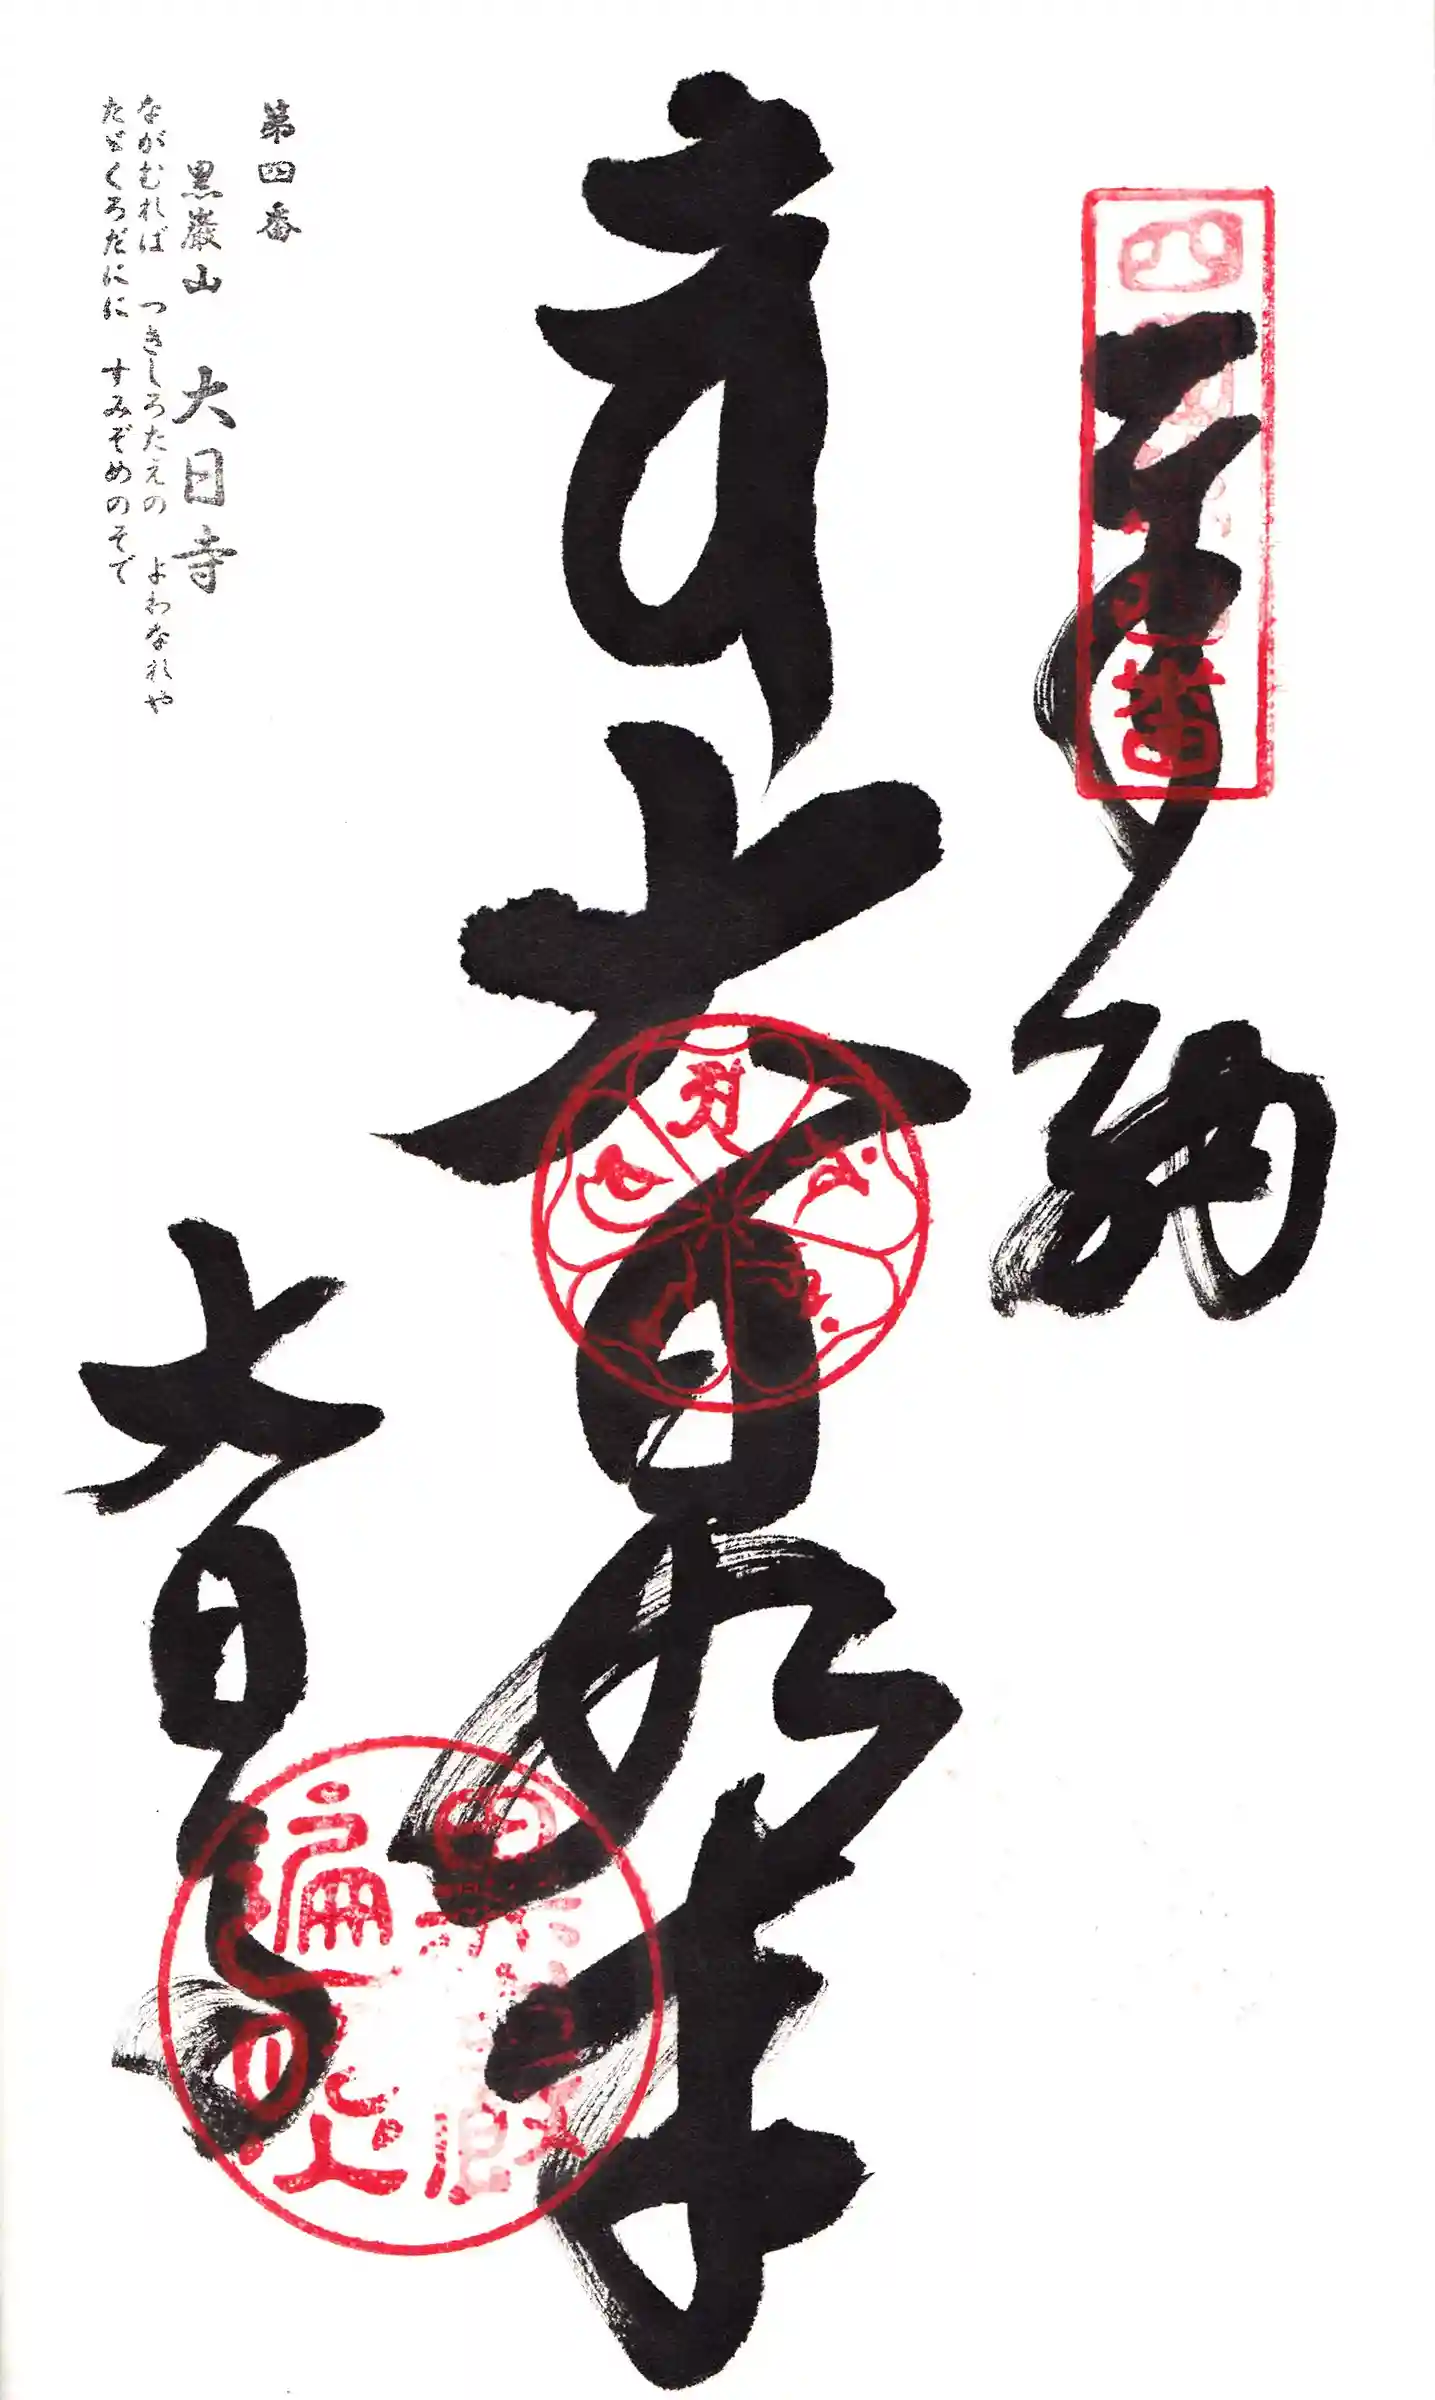 四国第四番
奉納
大日如来
大日寺
遍照
第四番
黒巌山　大日寺
ながむれば　つきしろたえの　よわなれや
たゞくろだにに　すみぞめのそで